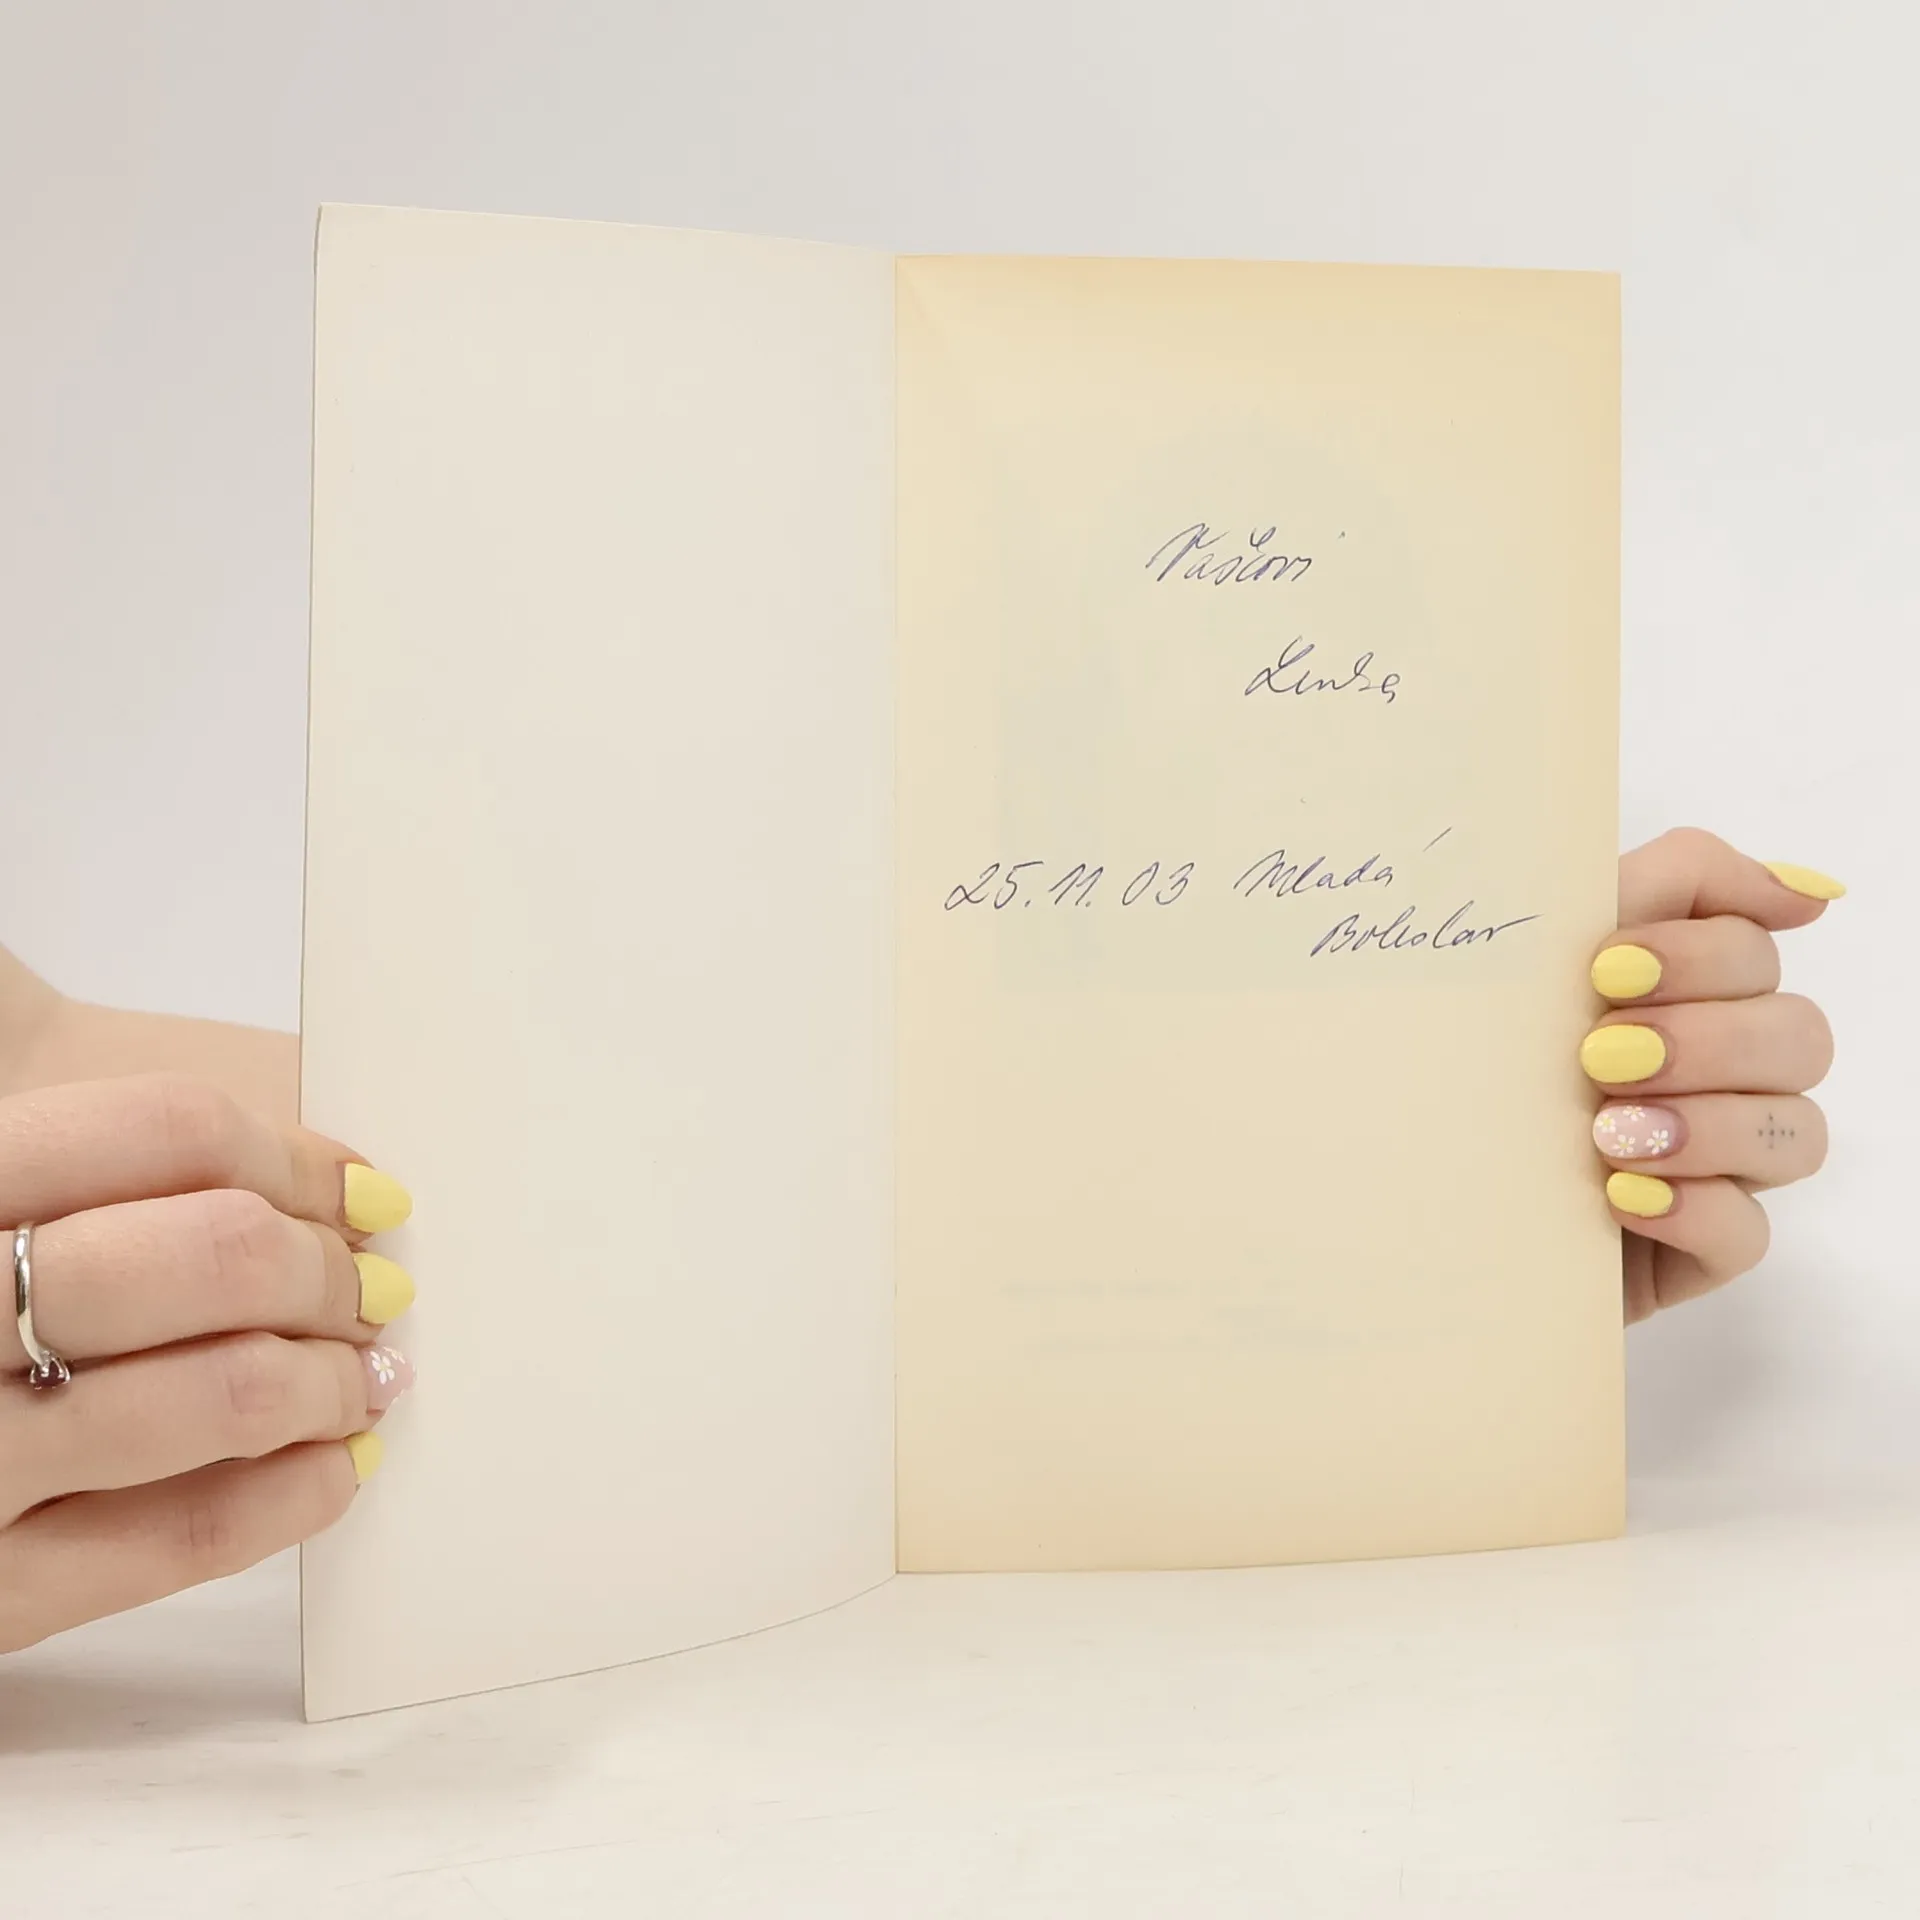 Vaškovi
Lenka
25. 11. 03 Mladá
Boleslav